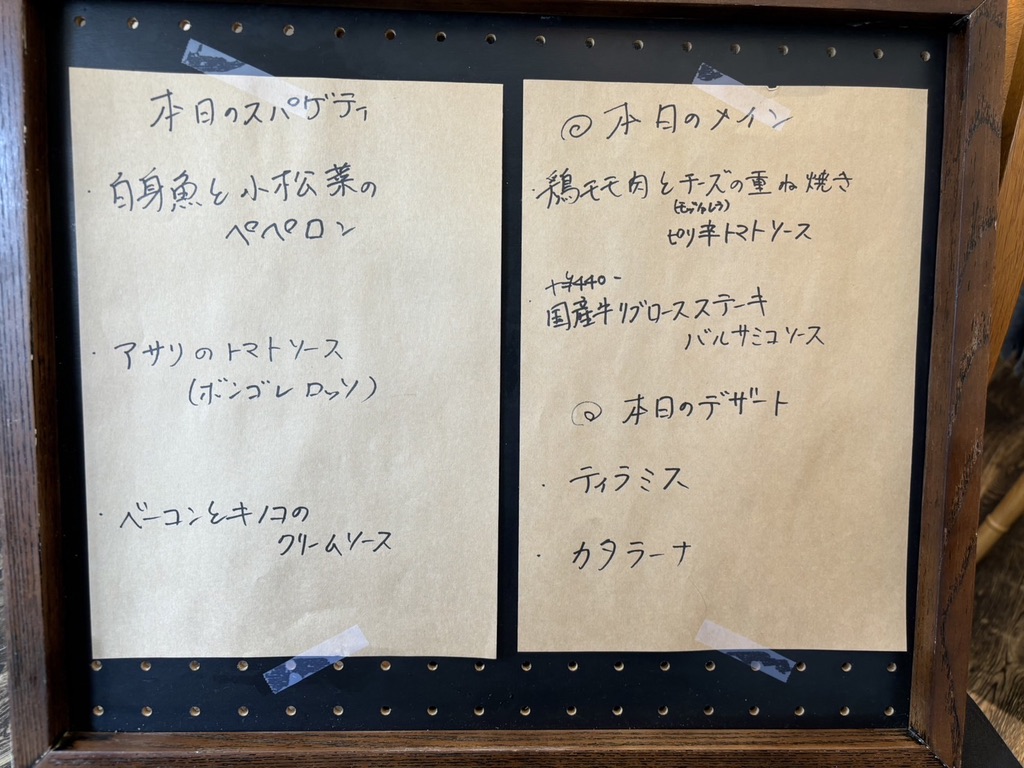 本日のスパゲティ
・白身魚と小松菜の
ペペロン
・アサリのトマトソース
(ボンゴレ ロッソ)
・ベーコンとキノコの
クリームソース
◎ 本日のメイン
・鶏モモ肉とチーズの重ね焼き
(モッツァレラ)
ピリ辛トマトソース
+¥440-
国産牛リブロースステーキ
バルサミコソース
◎ 本日のデザート
・ティラミス
・カタラーナ